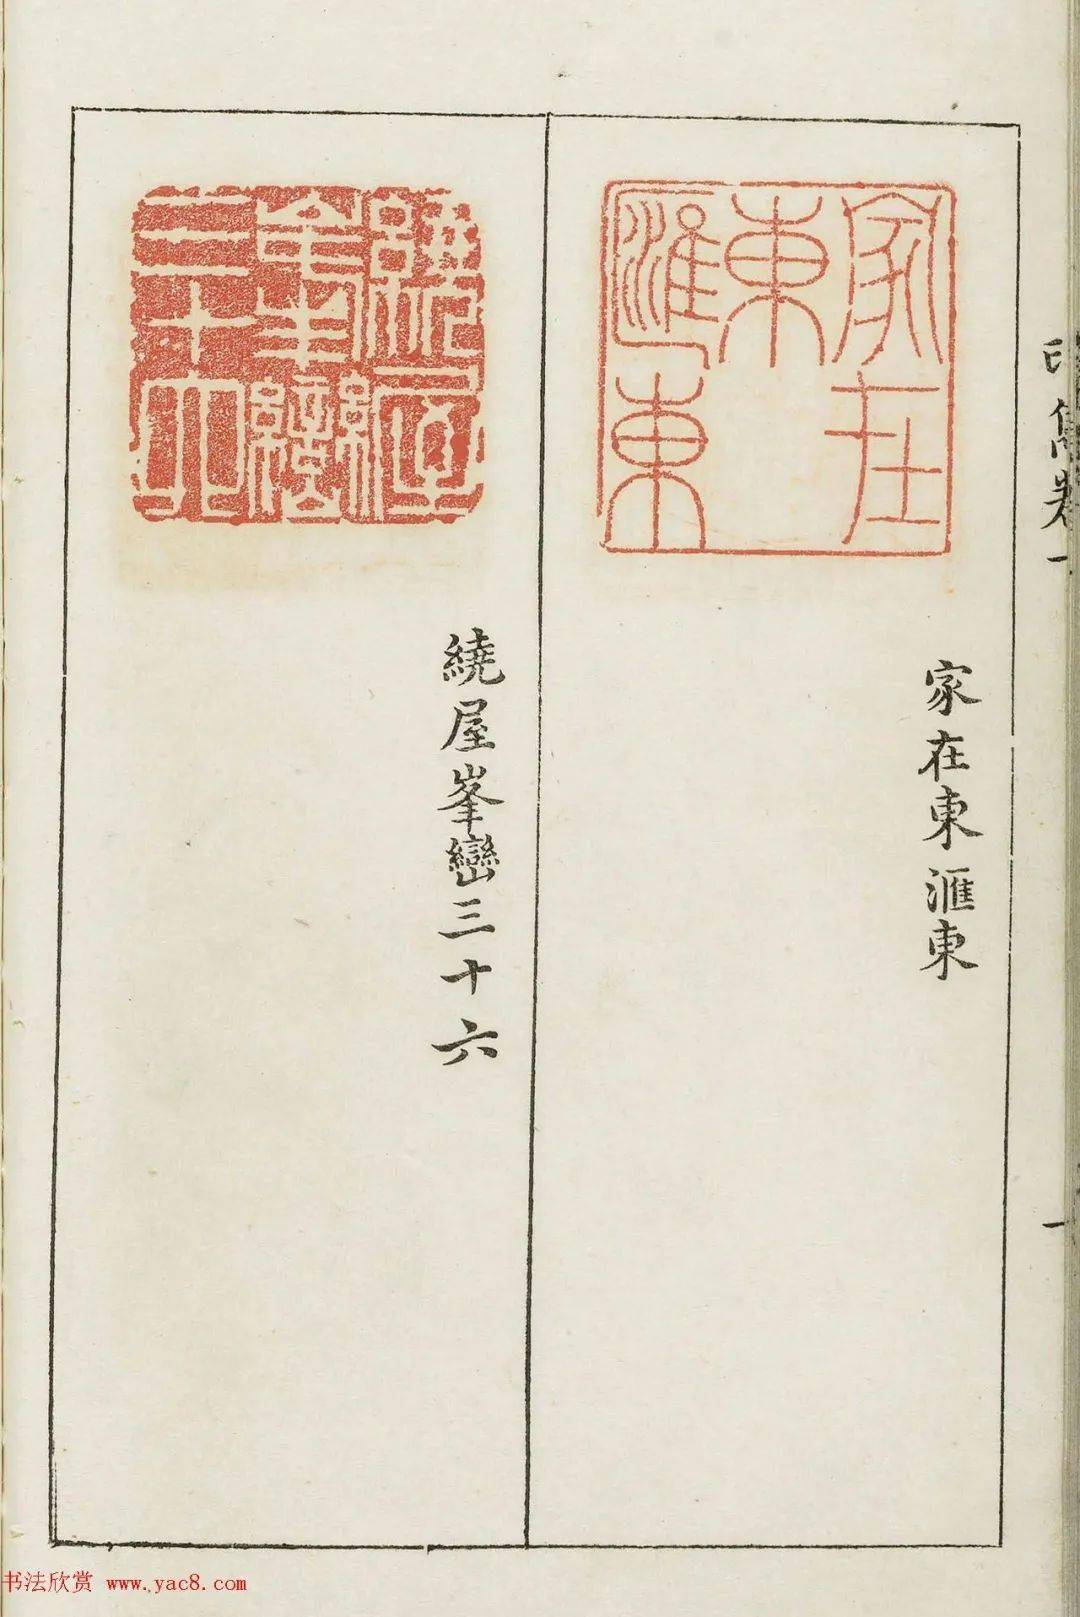 家在東滙東
家在東滙東
繞屋峯巒三十六
繞屋峯巒三十六
印雋卷一
一
书法欣赏 www.yac8.com